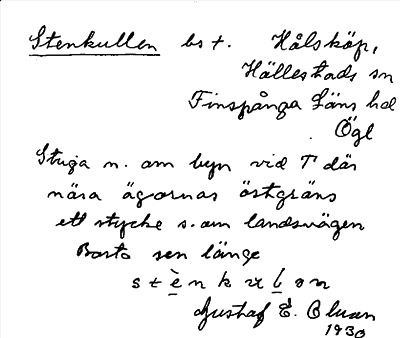 Stenkullen bst. Hålsköp,
Hällestads sn
Finspånga Läns hd
Ögl
Stuga n. om byn vid T där
nära ägornas östgräns
ett stycke s. om landsvägen
Borta sen länge
s t è n k u l o n
Gustaf E.
1930